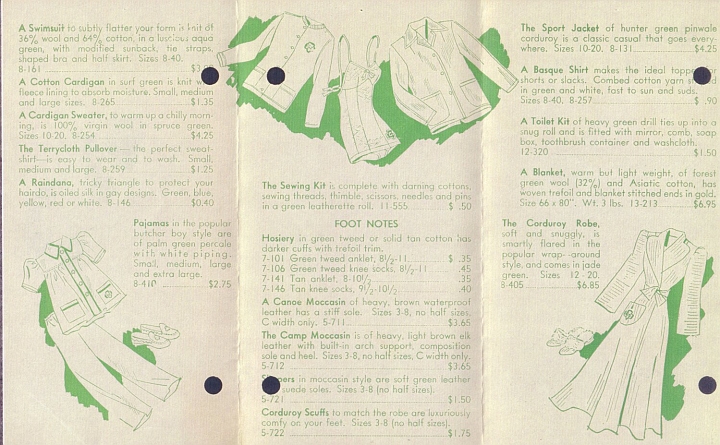 A Swimsuit to subtly flatter your form is knit of
36% wool and 64% cotton, in a luscious aqua
green, with modified sunback, tie straps,
shaped bra and half skirt. Sizes 8-40.
8-161
A Cotton Cardigan in surf green is knit
fleece lining to absorb moisture. Small, medium
and large sizes. 8-265 $1.35
A Cardigan Sweater, to warm up a chilly morn-
ing, is 100% virgin wool in spruce green.
Sizes 10-20. 8-254 $4.25
The Terrycloth Pullover — the perfect sweat-
shirt—is easy to wear and to wash. Small,
medium and large. 8-259 $1.25
A Raindana, tricky triangle to protect your
hairdo, is oiled silk in gay designs. Green, blue,
yellow, red or white. 8-146 $0.40
Pajamas in the popular
butcher boy style are
of palm green percale
with white piping.
Small, medium, large
and extra large.
8-410 $2.75
The Sewing Kit is complete with darning cottons,
sewing threads, thimble, scissors, needles and pins
in a green leatherette roll. 11-555 $ .50
FOOT NOTES
Hosiery in green tweed or solid tan cotton has
darker cuffs with trefoil trim.
7-101 Green tweed anklet, 8½-11 $ .35
7-106 Green tweed knee socks, 8½-11 .45
7-141 Tan anklet, 8-10½ .35
7-146 Tan knee socks, 9½-10½ .40
A Canoe Moccasin of heavy, brown waterproof
leather has a stiff sole. Sizes 3-8, no half sizes,
C width only. 5-711 $3.65
The Camp Moccasin is of heavy, light brown elk
leather with built-in arch support, composition
sole and heel. Sizes 3-8, no half sizes, C width only.
5-712 $3.65
in moccasin style are soft green leather
suede soles. Sizes 3-8 (no half sizes).
5-721 $1.50
Corduroy Scuffs to match the robe are luxuriously
comfy on your feet. Sizes 3-8 (no half sizes).
5-722 $1.75
The Sport Jacket of hunter green pinwale
corduroy is a classic casual that goes every-
where. Sizes 10-20. 8-131 $4.25
A Basque Shirt makes the ideal topper for
shorts or slacks. Combed cotton yarn
in green and white, fast to sun and suds.
Sizes 8-40. 8-257 $ .90
A Toilet Kit of heavy green drill ties up into a
snug roll and is fitted with mirror, comb, soap
box, toothbrush container and washcloth.
12-320 $1.50
A Blanket, warm but light weight, of forest
green wool (32%) and Asiatic cotton, has
woven trefoil and blanket stitched ends in gold.
Size 66 x 80". Wt. 3 lbs. 13-213 $6.95
The Corduroy Robe,
soft and snuggly, is
smartly flared in the
popular wrap-around
style, and comes in jade
green. Sizes 12-20.
8-405 $6.85